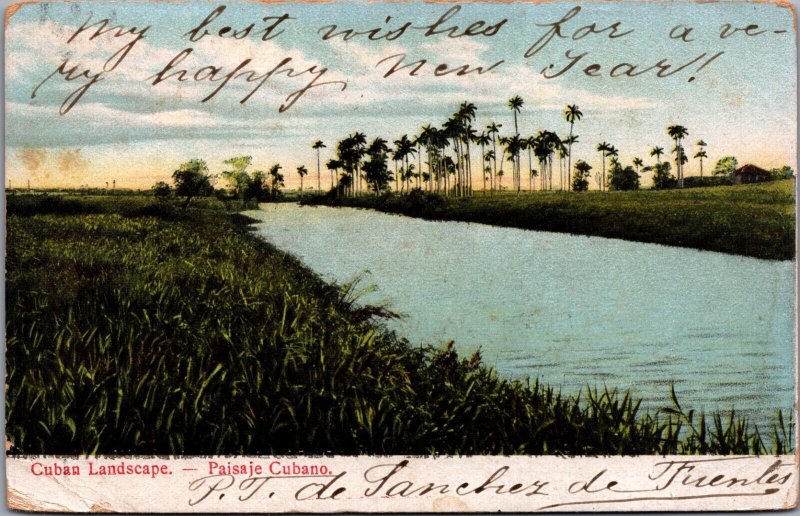 My best wishes for a ve-
ry happy New Year!
Cuban Landscape. — Paisaje Cubano.
P.T. de Sanchez de Fuentes